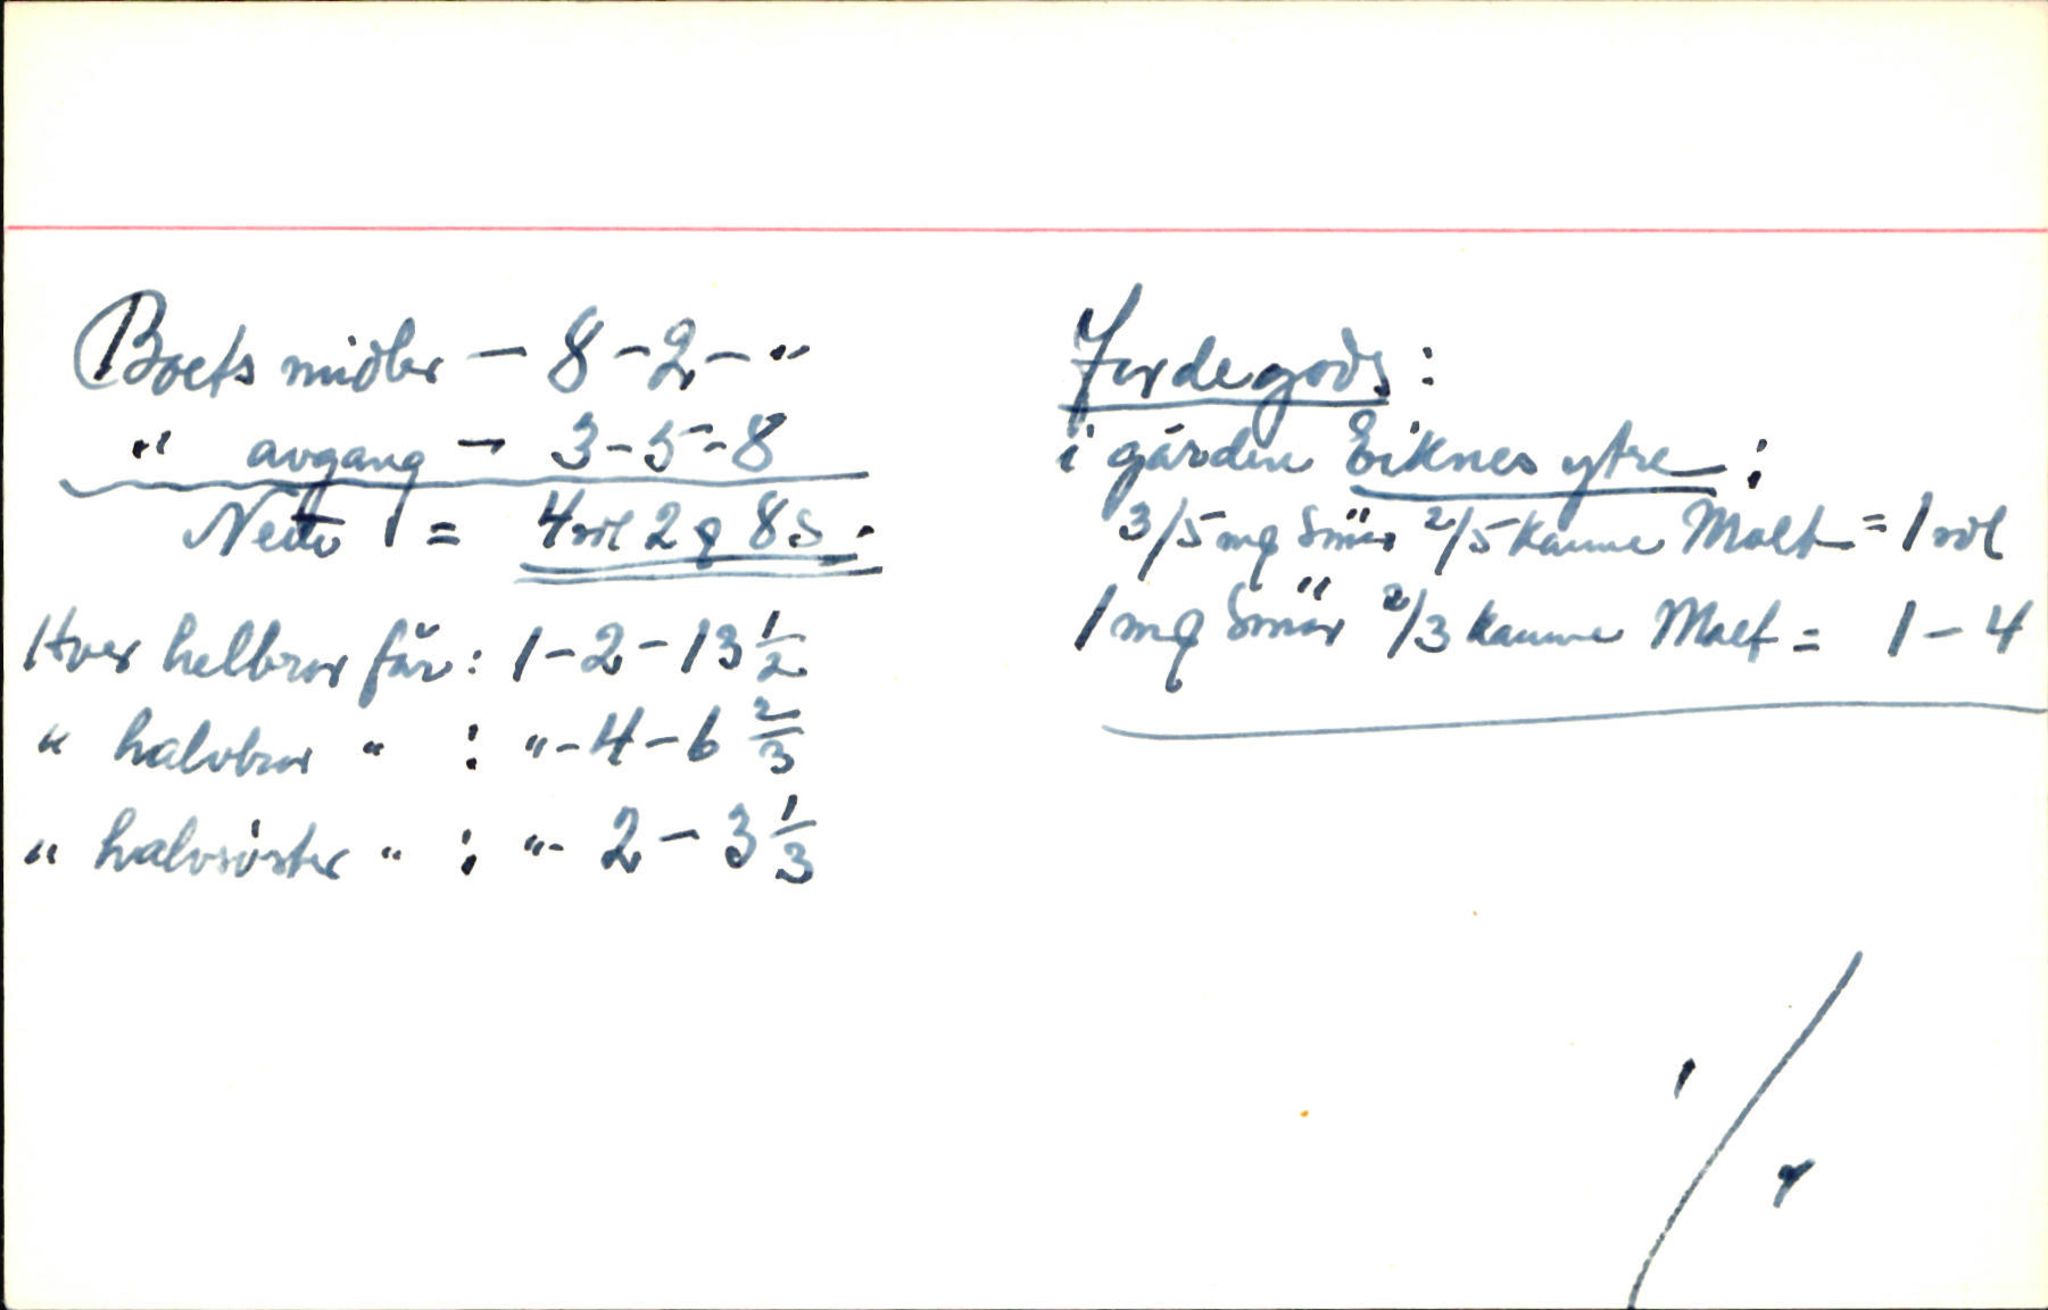 Boets midler - 8 - 2 - "
" avgang - 3 - 5 - 8
Netto = 4 rdl 2 q 8 s.
Hver helbror får: 1 - 2 - 13 1/2
" halvbror " : " - 4 - 6 2/3
" halvsöster " : " - 2 - 3 1/3
Jordegods:
i gården Eiknes ytre:
3/5 mq Smör 2/5 kanne Malt = 1 rdl
1 mq Smör 2/3 kanne Malt = 1 - 4